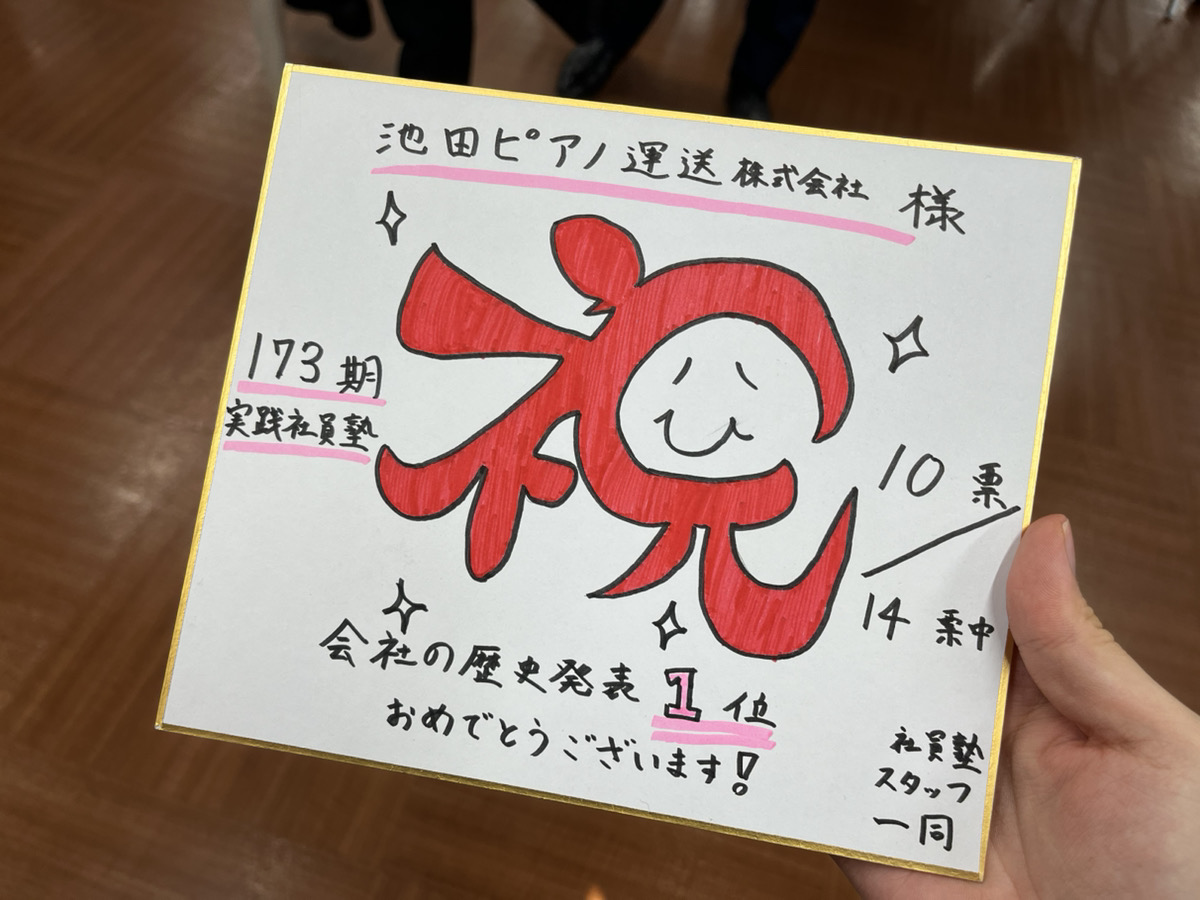 池田ピアノ運送株式会社 様
祝
173期
実践社員塾
10票
14票中
会社の歴史発表1位
おめでとうございます!
社員塾
スタッフ
一同